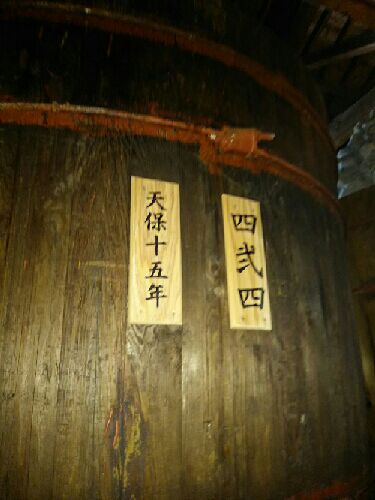 天保十五年
四弐四